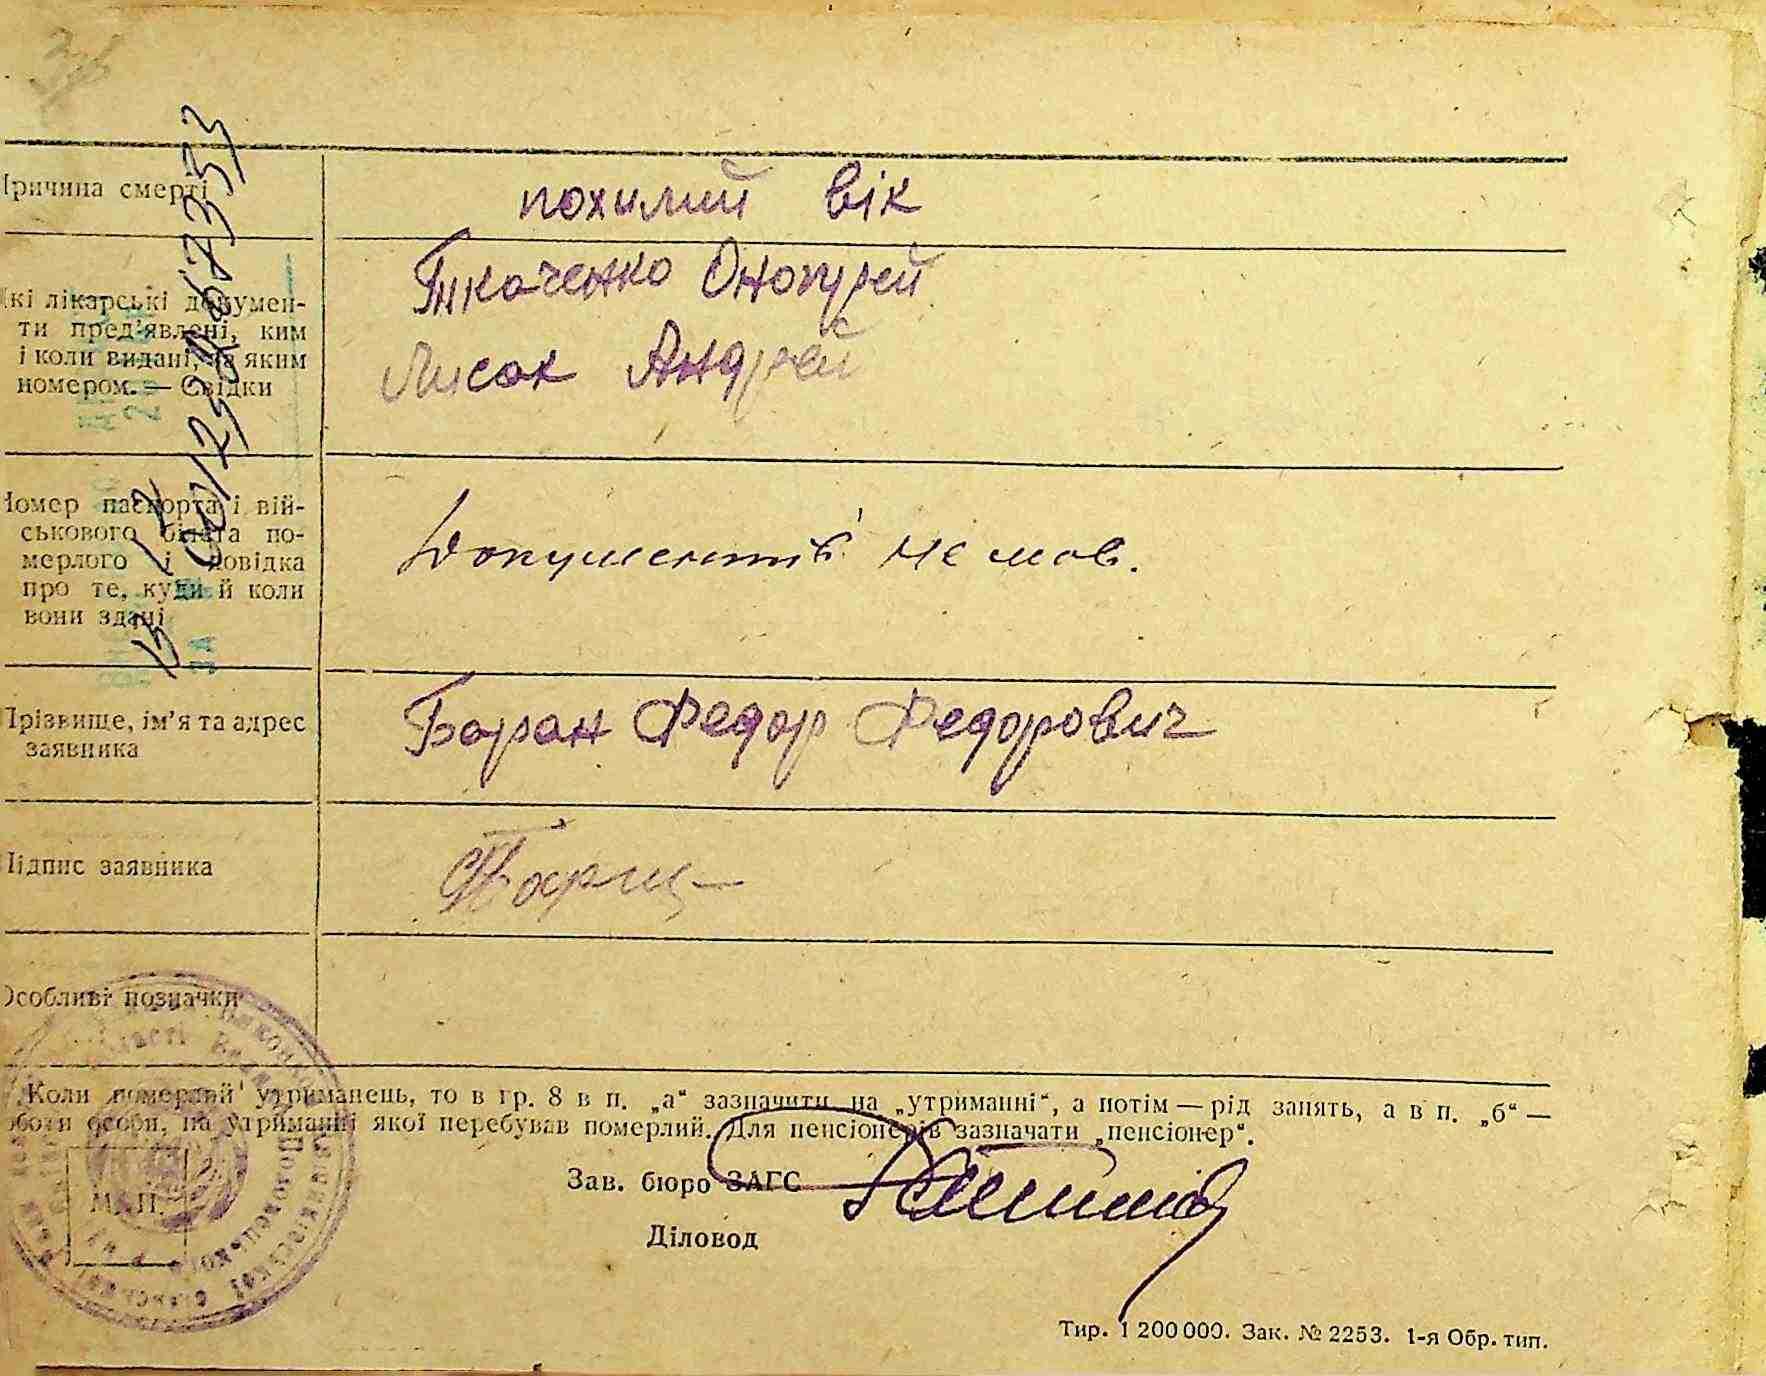 Причина смерті
похилий вік
Які лікарські докумен-
ти пред'явлені, ким
і коли видані, за яким
номером. — Свідки
Ткаченко Онопрей
Лисак Андрей
Номер паспорта і вій-
ськового білета по-
мерлого і довідка
про те, куди й коли
вони здані
Документів не мав.
Прізвище, ім'я та адрес
заявника
Баран Федор Федорович
Підпис заявника
Особливі позначки
Коли померлий утриманець, то в гр. 8 в п. „а“ зазначити на „утриманні“, а потім — рід занять, а в п. „б“ —
роботи особи, на утриманні якої перебував померлий. Для пенсіонерів зазначати „пенсіонер“.
Зав. бюро ЗАГС
М. П.
Діловод
Тир. 1 200 000. Зак. № 2253. 1-я Обр. тип.